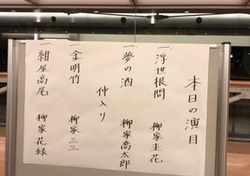 本日の演目
一 浮世根問 柳家圭花
一 夢の酒 柳家喬太郎
仲入り
一 金明竹 柳家三三
一 紺屋高尾 柳家花緑